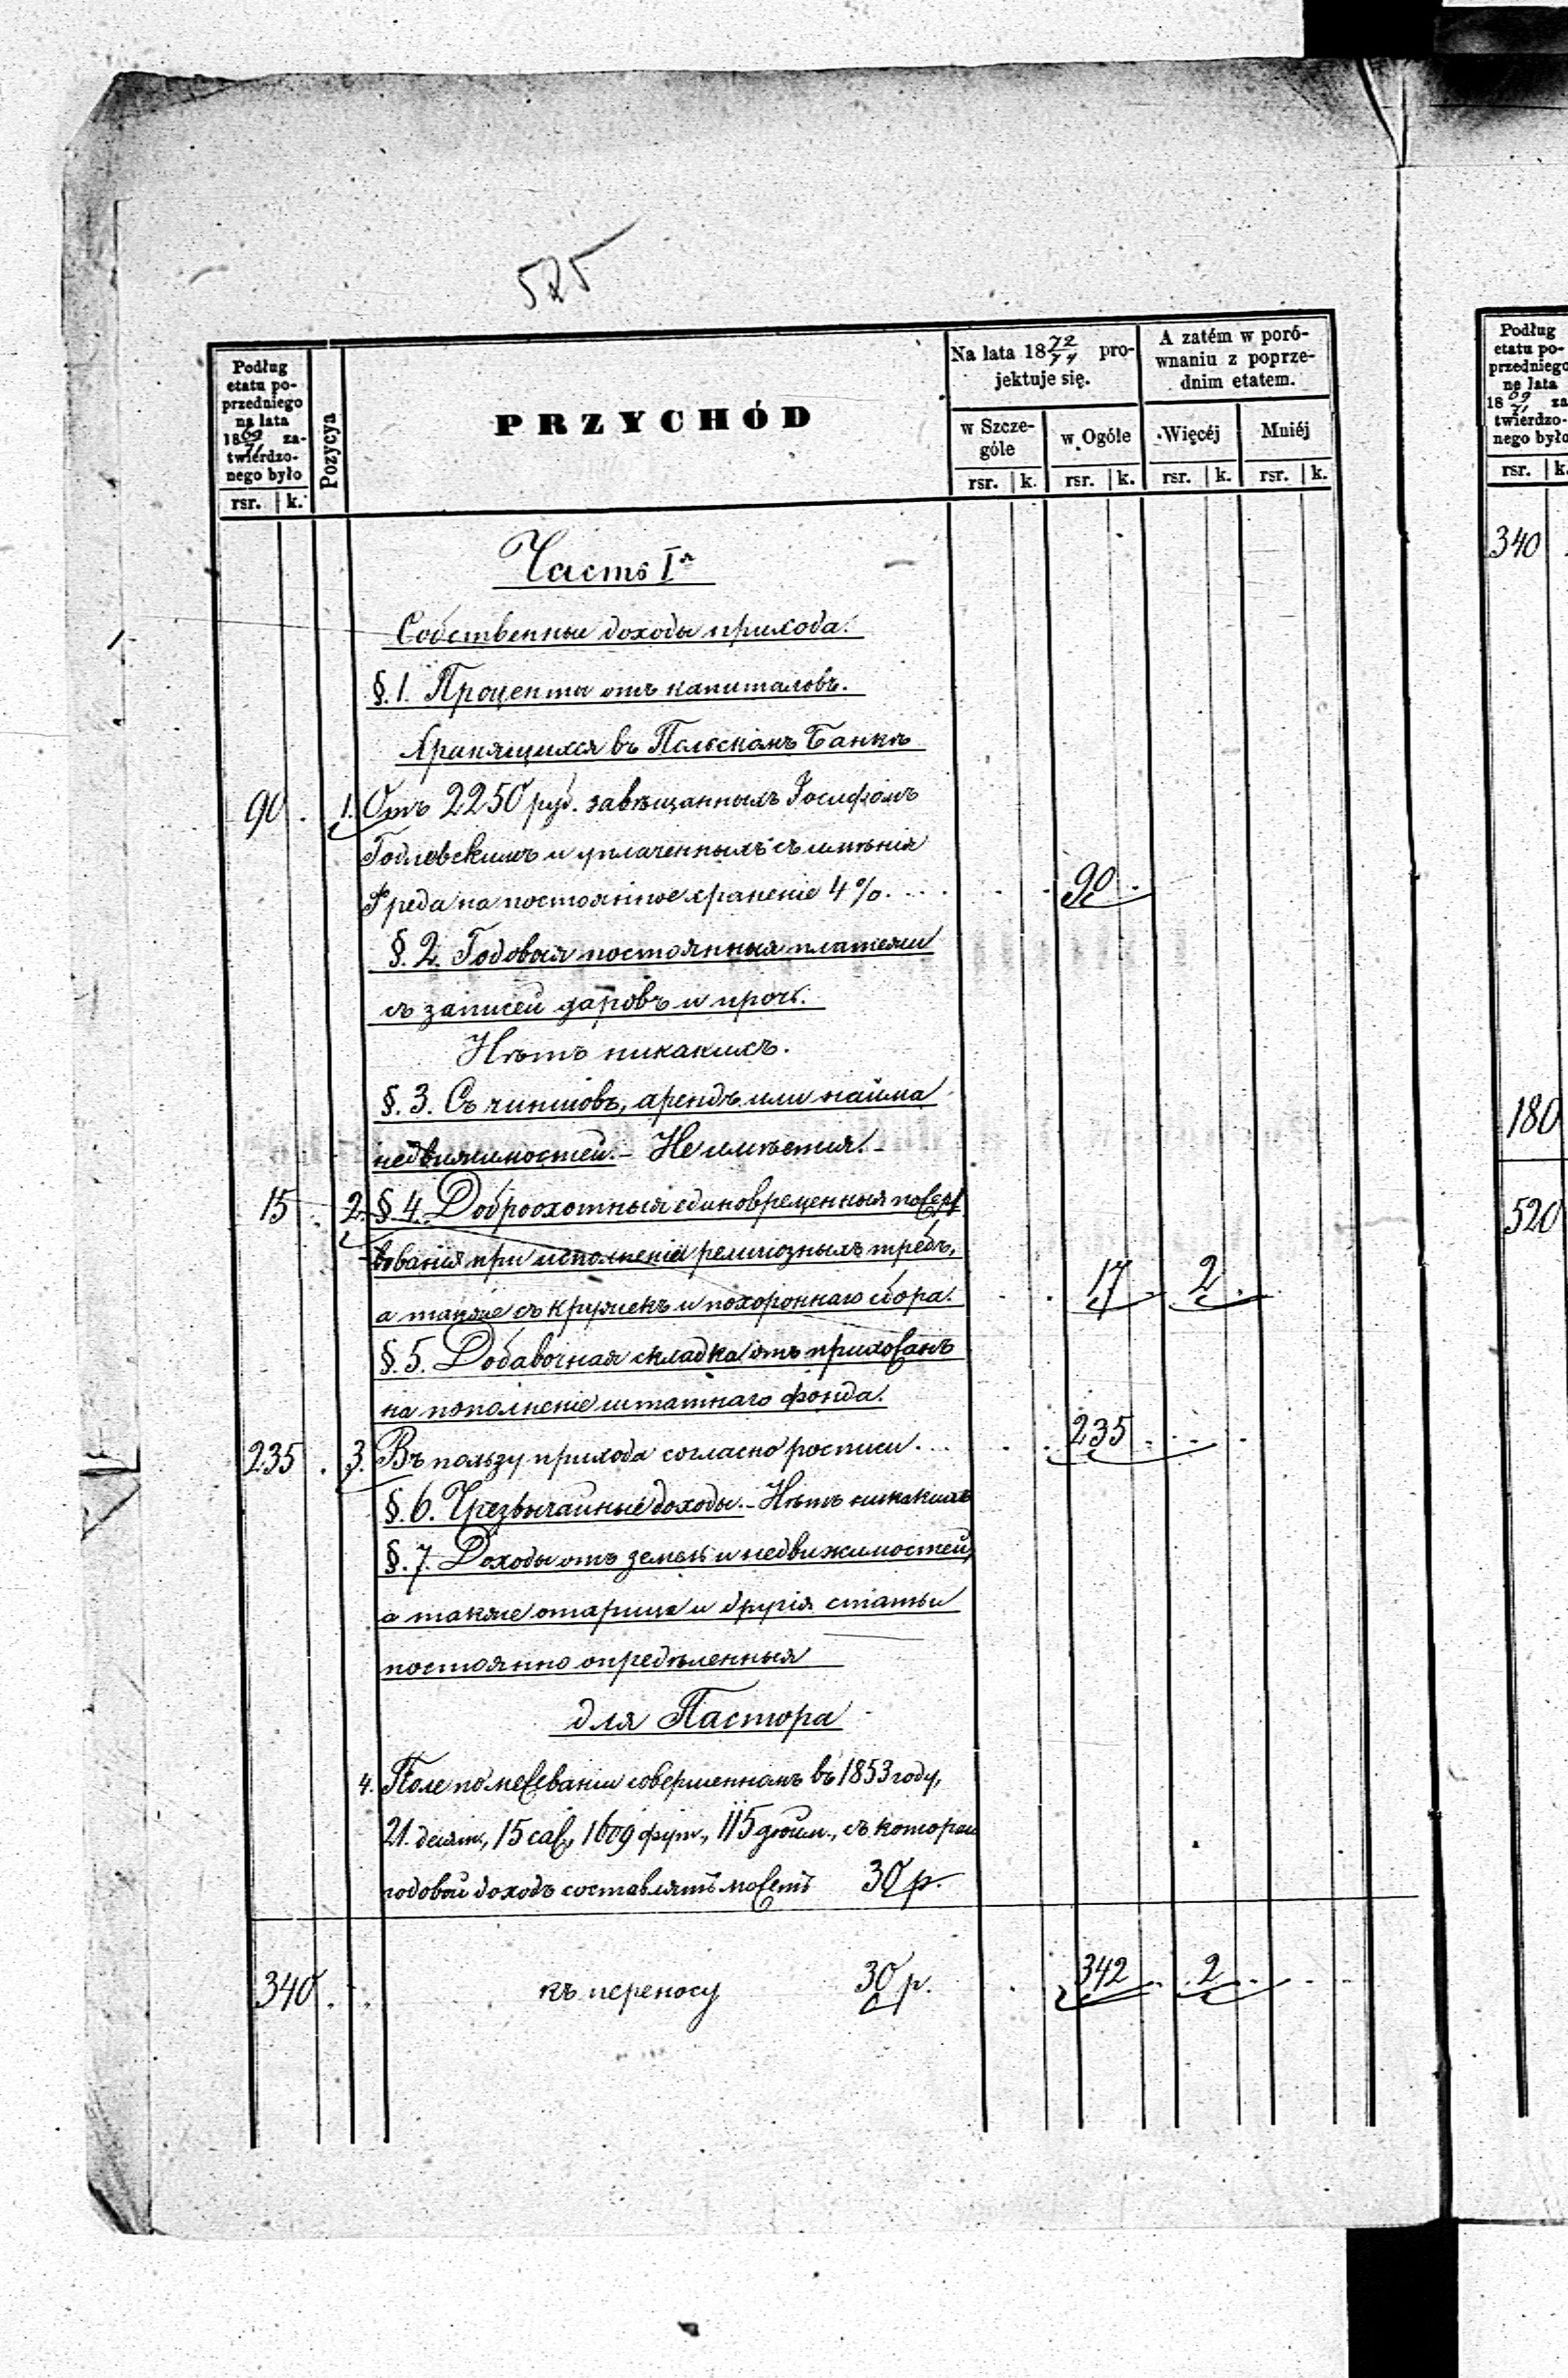 525
Podług etatu poprzedniego na lata 18 69/71 zatwierdzonego było
rsr. k.
Pozycya
PRZYCHÓD
Na lata 18 72/74 projektuje się.
w Szczególe
w Ogóle
rsr. k. rsr. k.
A zatém w porównaniu z poprzednim etatem.
Więcéj
Mniéj
rsr. k. rsr. k.
Часть Iя
Собственные доходы прихода.
§. 1. Проценты отъ капиталовъ.
Хранящихся въ Польскомъ Банкѣ
90 . 1. Отъ 2250 руб. завѣщанныхъ Іосифомъ
Годлевскимъ и уплаченныхъ съ имѣнія
Фреда на постоянное хранение 4%. . . . . . . 90 .
§. 2. Годовыя постоянныя платежи
съ записей даровъ и проч.
Нѣтъ никакихъ.
§. 3. Съ чиншовъ, арендъ или найма
недвижимостей. – Не имѣется. –
15 . 2. § 4. Доброохотныя единовременныя пожерт
–вованія при исполненіи религіозныхъ требъ,
а также съ кружекъ и похороннаго сбора. . . 17 2 .
§. 5. Добавочная складка отъ прихожанъ
на пополненіе штатнаго фонда.
235 . 3. Въ пользу прихода согласно росписи. . . . . 235 . . . .
§. 6. Чрезвычайные доходы. – Нѣтъ никакихъ
§. 7. Доходы отъ земель и недвижимостей,
а также и другія статьи
постоянно опредѣленныя
для Пастора
4. Поле по межеваніи совершенномъ въ 1853 году,
21. десят., 15 саж., 1609 фут., 115 дюйм., съ которой
годовой доходъ составлять можетъ 30 р.
340 . . . къ переносу 30 р. . 342 . . 2 . . . .
Podług etatu poprzedniego na lata 18 69/71 zatwierdzonego było
rsr. k.
340 .
180
520